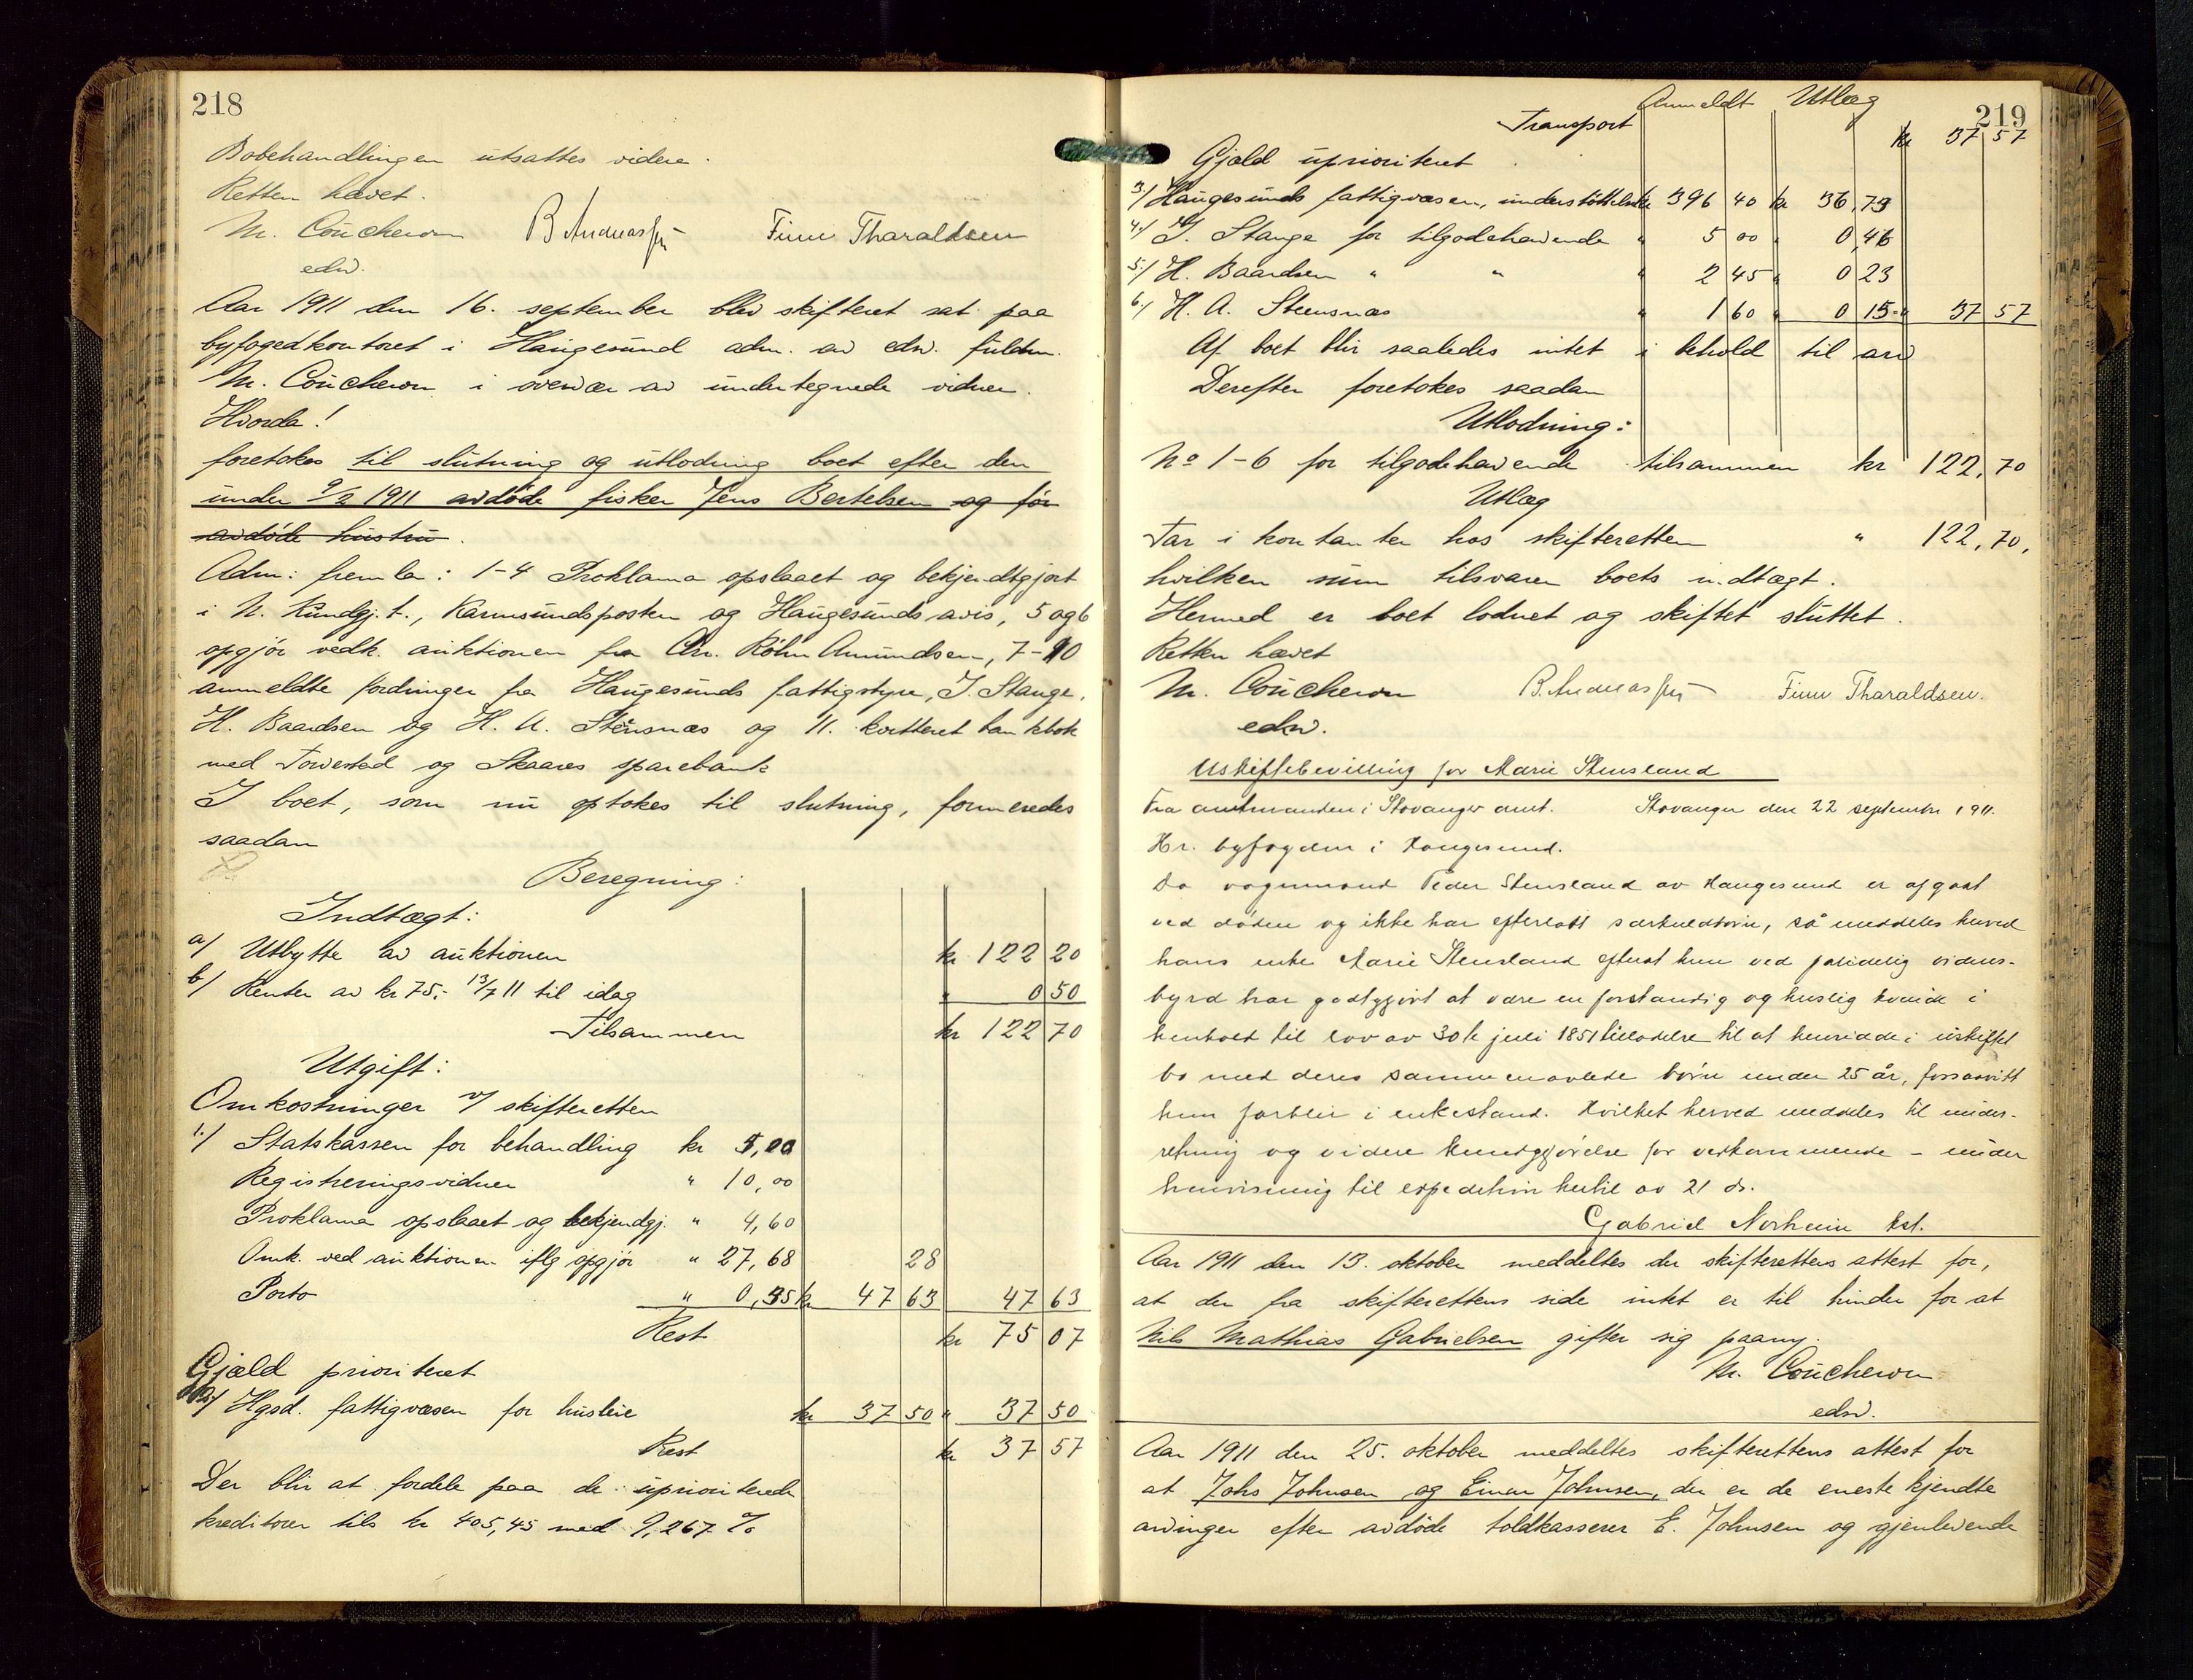 218
Bobehandlingen utsattes videre.
Retten hævet.
M. Coucheron B. Andreassen Finn Tharaldsen
edsv.
Aar 1911 den 16. september blev skifteret sat paa
byfogedkontoret i Haugesund adm. av edsv. fuldm.
M. Coucheron i overvær av undertegnede vidner.
Hvorda!
foretokes til slutning og utlodning boet efter den
under 9/2 1911 avdöde fisker Jens Bertelsen og för
avdöde hustru.
Adm: fremla: 1-4 Proklama opslaaet og bekjendtgjort
i N. Kundgj.t., Karmsundsposten og Haugesunds avis, 5 og 6
opgjör vedk. auktionen fra Chr. Röhn Amundsen, 7-10
anmeldte fordringer fra Haugesunds fattigstyre, J. Stange,
H. Baardsen og H. A. Stensnæs og 11. kvitteret bankbok
med Torvestad og Skaares sparebank
I boet, som nu optokes til slutning, formeredes
saadan
Beregning:
Indtægt:
a/ Utbytte av auktionen kr 122 20
b/ Renter av kr 75,- 13/7 11 til idag " 0 50
Tilsammen kr 122 70
Utgift:
Omkostninger v/ skifteretten
1./ Statskassen for behandling kr 5,00
Registreringsvidner " 10,00
Proklama opslaaet og bekjendgj. " 4,60
Omk. ved auktionen iflg opgjör " 27,68 28
Porto " 0,35 kr 47 63 47 63
Rest kr 75 07
Gjæld prioritert
2/ Hgsd. fattigvæsen for husleie kr 37 50 " 37 50
Rest kr 37 57
Der blir at fordele paa de uprioriterede
kreditorer tils kr 405,45 med 9,267 %
219
Anmeldt Utlæg
Transport kr 37 57
Gjæld uprioriteret
3./ Haugesunds fattigvæsen, understöttelse kr 396 40 kr 36,73
4./ J. Stange for tilgodehavende " 5 00 " 0,46
5./ H. Baardsen " " " 2 45 " 0 23
6./ H. A. Steensnæs " 1 60 " 0 15 " 37 57
Af boet blir saaledes intet i behold til arv
Derefter foretokes saadan
Utlodning:
No 1-6 for tilgodehavende tilsammen kr 122,70
Utlæg
Tar i kontanter hos skifteretten " 122,70,
hvilken sum tilsvarer boets indtægt.
Hermed er boet lodnet og skiftet sluttet.
Retten hævet
M. Coucheron B. Andreassen Finn Tharaldsen.
edsv.
Uskiftebevilling for Marie Stensland
Fra amtmanden i Stavanger amt. Stavanger den 22 september 1911.
Hr. byfogden i Haugesund.
Da vognmand Peder Stensland av Haugesund er afgaat
ved döden og ikke har efterlatt særkuldbørn, så meddeles herved
hans enke Marie Stensland efterat hun ved pålidelig vidnes-
byrd har godtgjort at være en forstandig og huslig kvinde i
henhold til lov av 30te juli 1851 tilladelse til at hensidde i uskiftet
bo med deres sammenavlede børn under 25 år, forsaavitt
hun forblir i enkestand. Hvilket herved meddeles til under-
retning og videre kundgjørelse for vedkommende – under
henvisning til expedition hertil av 21 ds.
Gabriel Norheim kst.
Aar 1911 den 13. oktober meddeltes der skifterettens attest for,
at der fra skifterettens side intet er til hinder for at
Nils Mathias Gabrielsen gifter sig paany.
M. Coucheron
edsv.
Aar 1911 den 25. oktober meddeltes skifterettens attest for
at Johs Johnsen og Einar Johnsen, der er de eneste kjendte
arvinger efter avdöde toldkasserer E. Johnsen og gjenlevende